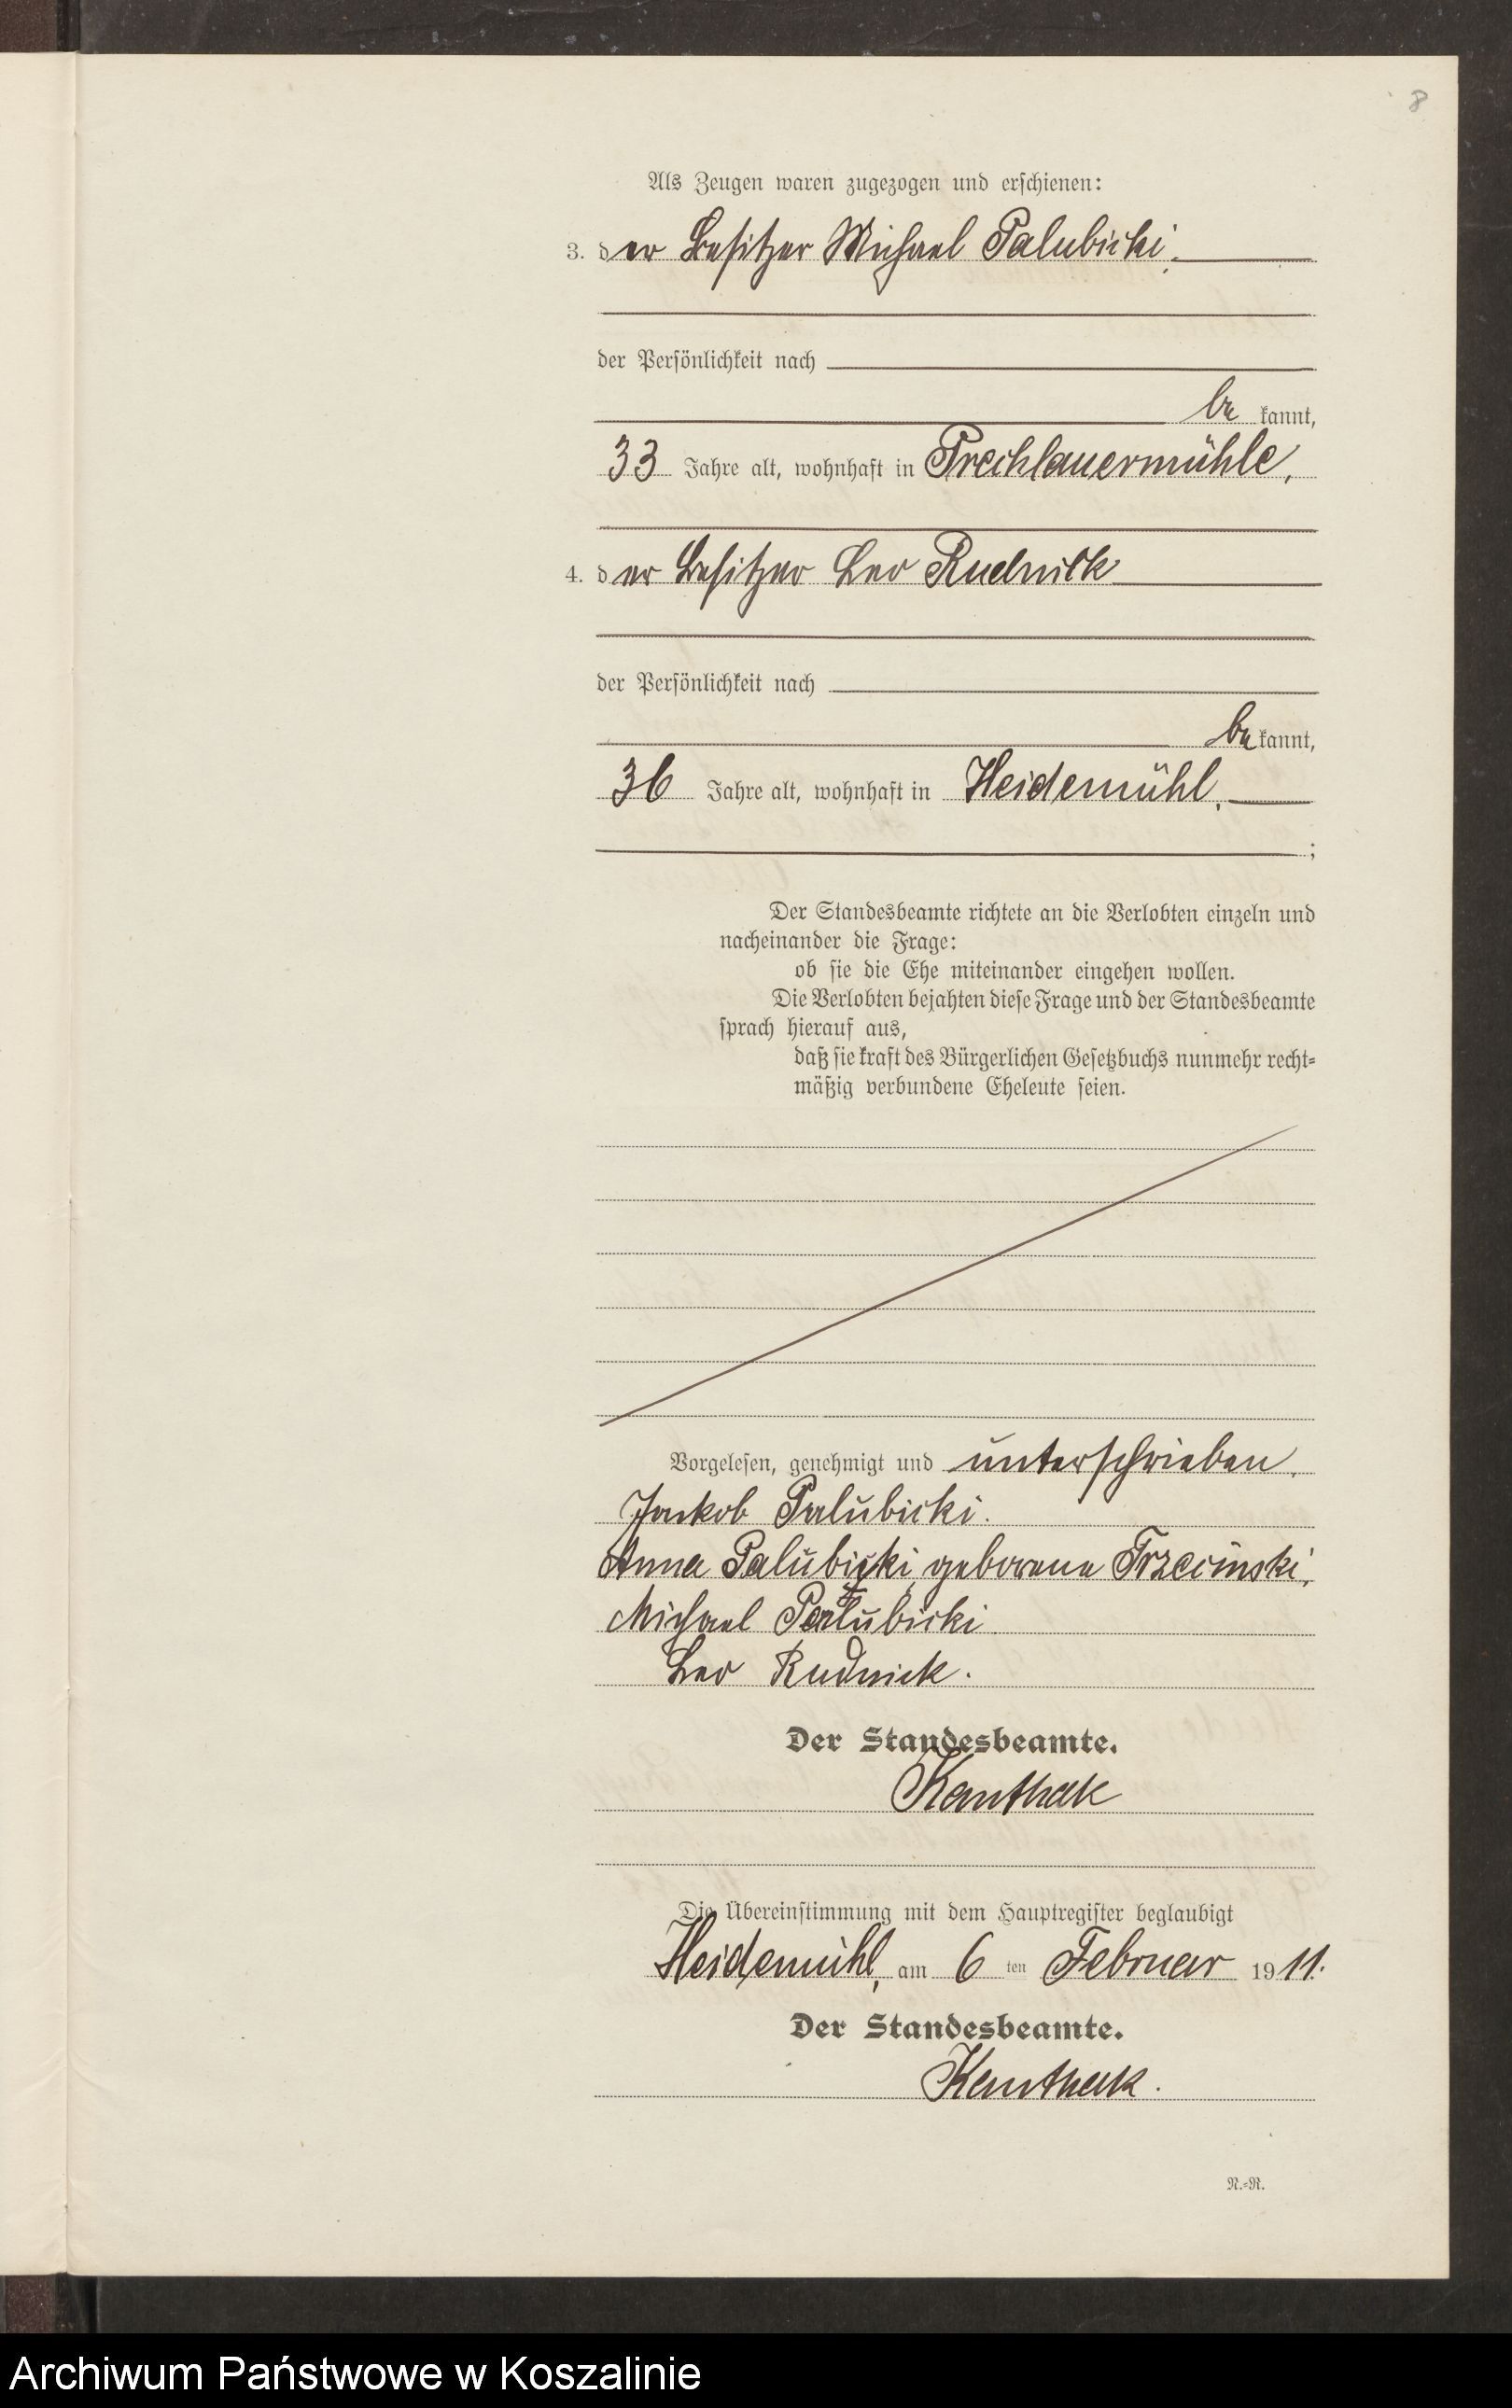 8
Als Zeugen waren zugezogen und erschienen:
3. der Besitzer Michael Palubicki.
der Persönlichkeit nach
be kannt,
33 Jahre alt, wohnhaft in Prechlauermühle,
4. der Besitzer Leo Rudnick
der Persönlichkeit nach
be kannt,
36 Jahre alt, wohnhaft in Heidemühl.
;
Der Standesbeamte richtete an die Verlobten einzeln und
nacheinander die Frage:
ob sie die Ehe miteinander eingehen wollen.
Die Verlobten bejahten diese Frage und der Standesbeamte
sprach hierauf aus,
daß sie kraft des Bürgerlichen Gesetzbuchs nunmehr recht=
mäßig verbundene Eheleute seien.
Vorgelesen, genehmigt und unterschrieben.
Jakob Palubicki.
Anna Palubicki, geborene Trzecinski,
Michael Palubicki
Leo Rudnick.
Der Standesbeamte.
Kanthak
Die Übereinstimmung mit dem Hauptregister beglaubigt
Heidemühl, am 6 ten Februar 1911.
Der Standesbeamte.
Kanthak.
N.=R.
Archiwum Państwowe w Koszalinie